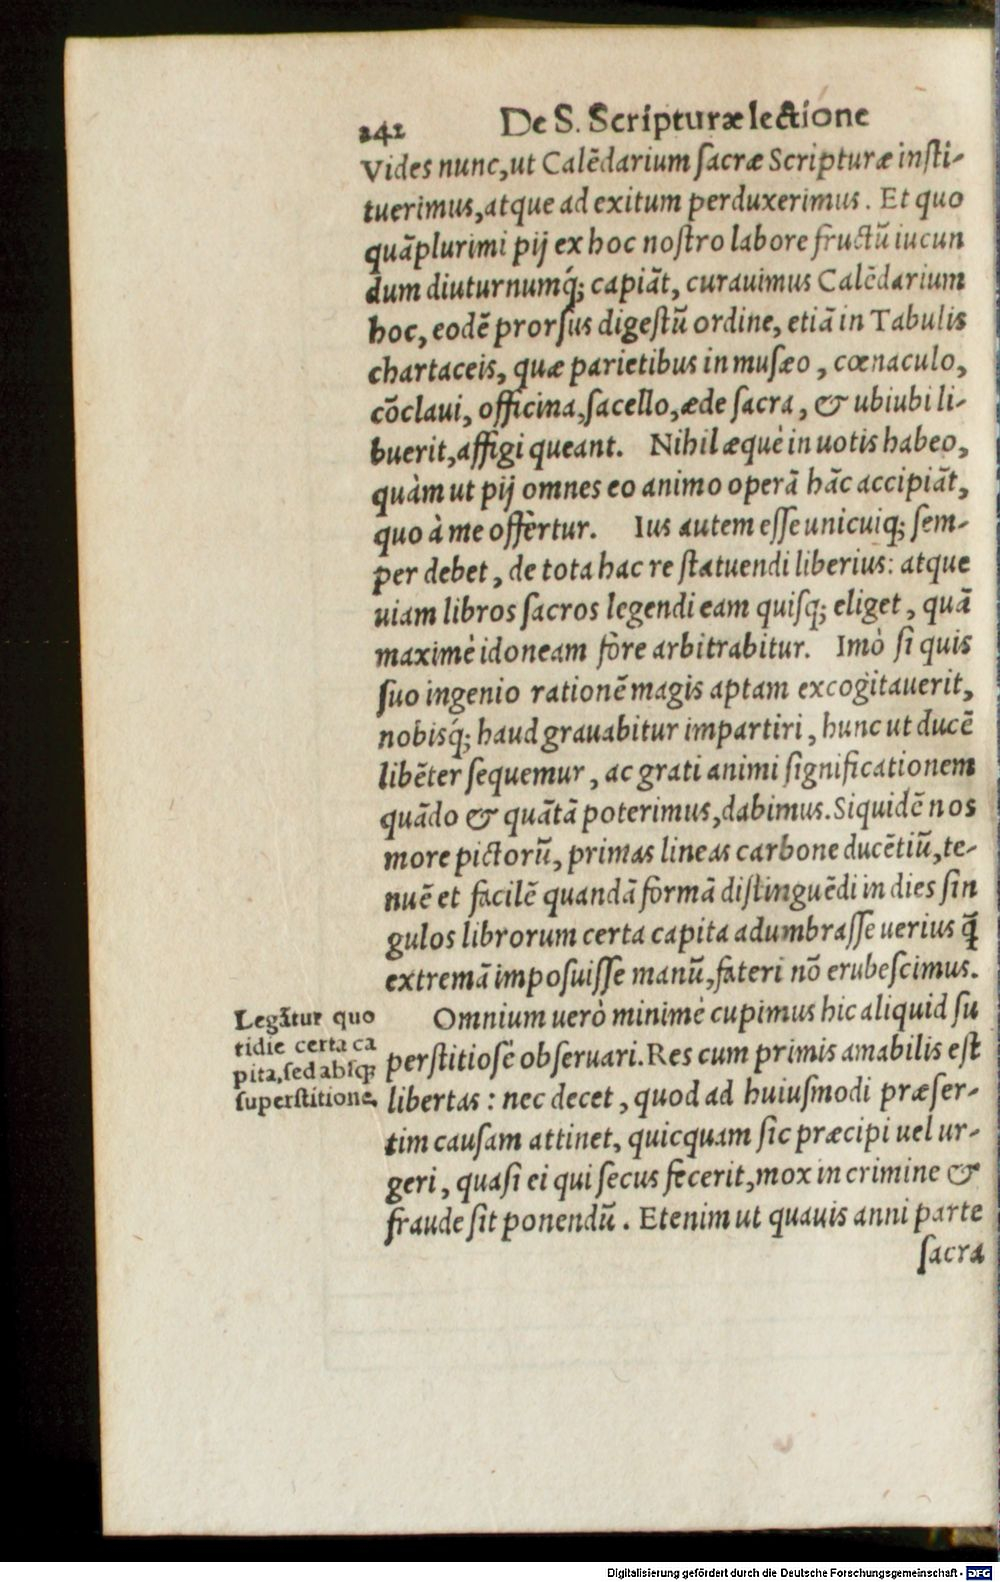 242 De S. Scripturæ lectione
Vides nunc, ut Calẽdarium ſacræ Scripturæ inſti-
tuerimus, atque ad exitum perduxerimus. Et quo
quãplurimi pij ex hoc noſtro labore fructũ iucun
dum diuturnumq́; capiãt, curauimus Calẽdarium
hoc, eodẽ prorſus digeſtũ ordine, etiã in Tabulis
chartaceis, quæ parietibus in muſæo, cœnaculo,
cõclaui, officina, ſacello, æde ſacra, & ubiubi li-
buerit, affigi queant. Nihil æquè in uotis habeo,
quàm ut pij omnes eo animo operã hãc accipiãt,
quo à me offertur. Ius autem eſſe unicuiq; ſem-
per debet, de tota hac re ſtatuendi liberius: atque
uiam libros ſacros legendi eam quiſq; eliget, quã
maximè idoneam fore arbitrabitur. Imò ſi quis
ſuo ingenio rationẽ magis aptam excogitauerit,
nobisq́; haud grauabitur impartiri, hunc ut ducẽ
libẽter ſequemur, ac grati animi ſignificationem
quãdo & quãtã poterimus, dabimus. Siquidẽ nos
more pictorũ, primas lineas carbone ducẽtiũ, te-
nuẽ et facilẽ quandã formã diſtinguẽdi in dies ſin
gulos librorum certa capita adumbraſſe uerius q̃
extremã impoſuiſſe manũ, fateri nõ erubeſcimus.
Omnium uerò minimè cupimus hic aliquid ſu
perſtitioſè obſeruari. Res cum primis amabilis eſt
libertas: nec decet, quod ad huiuſmodi præſer-
tim cauſam attinet, quicquam ſic præcipi uel ur-
geri, quaſi ei qui ſecus fecerit, mox in crimine &
fraude ſit ponendũ. Etenim ut quauis anni parte
ſacra
Legãtur quo
tidie certa ca
pita, ſed abſq;
ſuperſtitione.
Digitalisierung gefördert durch die Deutsche Forschungsgemeinschaft - DFG